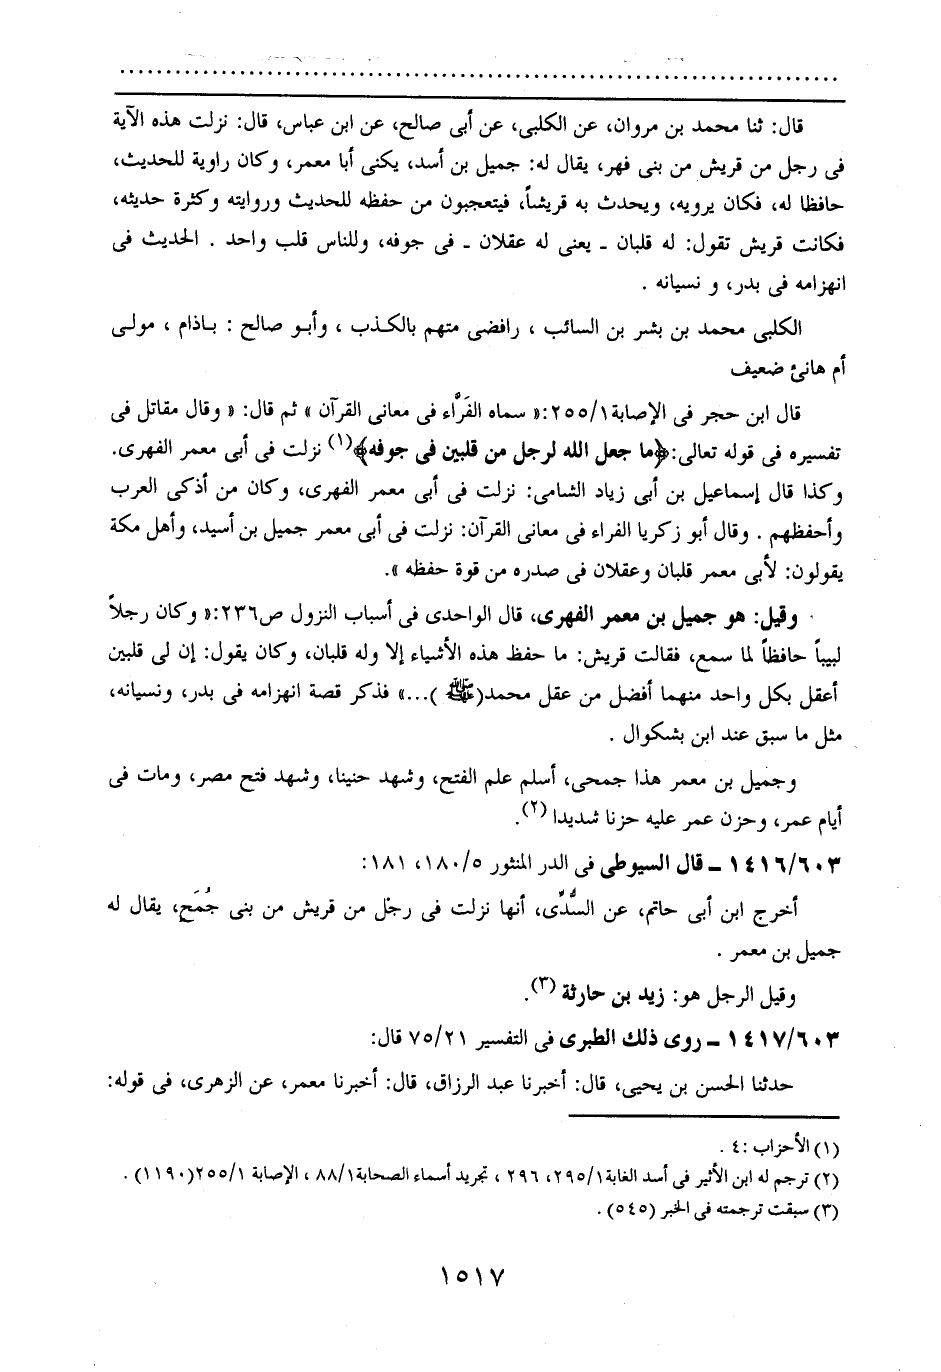 قال: ثنا محمد بن مروان، عن الكلبى، عن أبى صالح، عن ابن عباس، قال: نزلت هذه الآية
فى رجل من قريش من بنى فهر، يقال له: جميل بن أسد، يكنى أبا معمر، وكان راوية للحديث،
حافظا له، فكان يرويه، ويحدث به قريشاً، فيتعجبون من حفظه للحديث وروايته وكثرة حديثه،
فكانت قريش تقول: له قلبان ـ يعنى له عقلان ـ فى جوفه، وللناس قلب واحد . الحديث فى
انهزامه فى بدر، و نسيانه .
الكلبى محمد بن بشر بن السائب ، رافضى متهم بالكذب ، وأبو صالح : باذام ، مولى
أم هانئ ضعيف
قال ابن حجر فى الإصابة٢٥٥/١:« سماه الفَرَّاء فى معانى القرآن » ثم قال: « وقال مقاتل فى
تفسيره فى قوله تعالى:﴿ما جعل الله لرجل من قلبين فى جوفه﴾(١) نزلت فى أبى معمر الفهرى.
وكذا قال إسماعيل بن أبى زياد الشامى: نزلت فى أبى معمر الفهرى، وكان من أذكى العرب
وأحفظهم . وقال أبو زكريا الفراء فى معانى القرآن: نزلت فى أبى معمر جميل بن أسيد، وأهل مكة
يقولون: لأبى معمر قلبان وعقلان فى صدره من قوة حفظه ».
وقيل: هو جميل بن معمر الفهرى، قال الواحدى فى أسباب النزول ص٢٣٦:« وكان رجلاً
لبيباً حافظاً لما سمع، فقالت قريش: ما حفظ هذه الأشياء إلا وله قلبان، وكان يقول: إن لى قلبين
أعقل بكل واحد منهما أفضل من عقل محمد(ﷺ)...» فذكر قصة انهزامه فى بدر، ونسيانه،
مثل ما سبق عند ابن بشكوال .
وجميل بن معمر هذا جمحى، أسلم علم الفتح، وشهد حنينا، وشهد فتح مصر، ومات فى
أيام عمر، وحزن عمر عليه حزنا شديدا (٢).
١٤١٦/٦٠٣ ـ قال السيوطى فى الدر المنثور ١٨٠/٥، ١٨١:
أخرج ابن أبى حاتم، عن السُّدِّى، أنها نزلت فى رجل من قريش من بنى جُمَح، يقال له
جميل بن معمر .
وقيل الرجل هو: زيد بن حارثة (٣).
١٤١٧/٦٠٣ ـ روى ذلك الطبرى فى التفسير ٧٥/٢١ قال:
حدثنا الحسن بن يحيى، قال: أخبرنا عبد الرزاق، قال: أخبرنا معمر، عن الزهرى، فى قوله:
(١) الأحزاب :٤ .
(٢) ترجم له ابن الأثير فى أسد الغابة٢٩٥/١، ٢٩٦ ، تجريد أسماء الصحابة٨٨/١ ، الإصابة ٢٥٥/١(١١٩٠) .
(٣) سبقت ترجمته فى الخبر (٥٤٥) .
١٥١٧